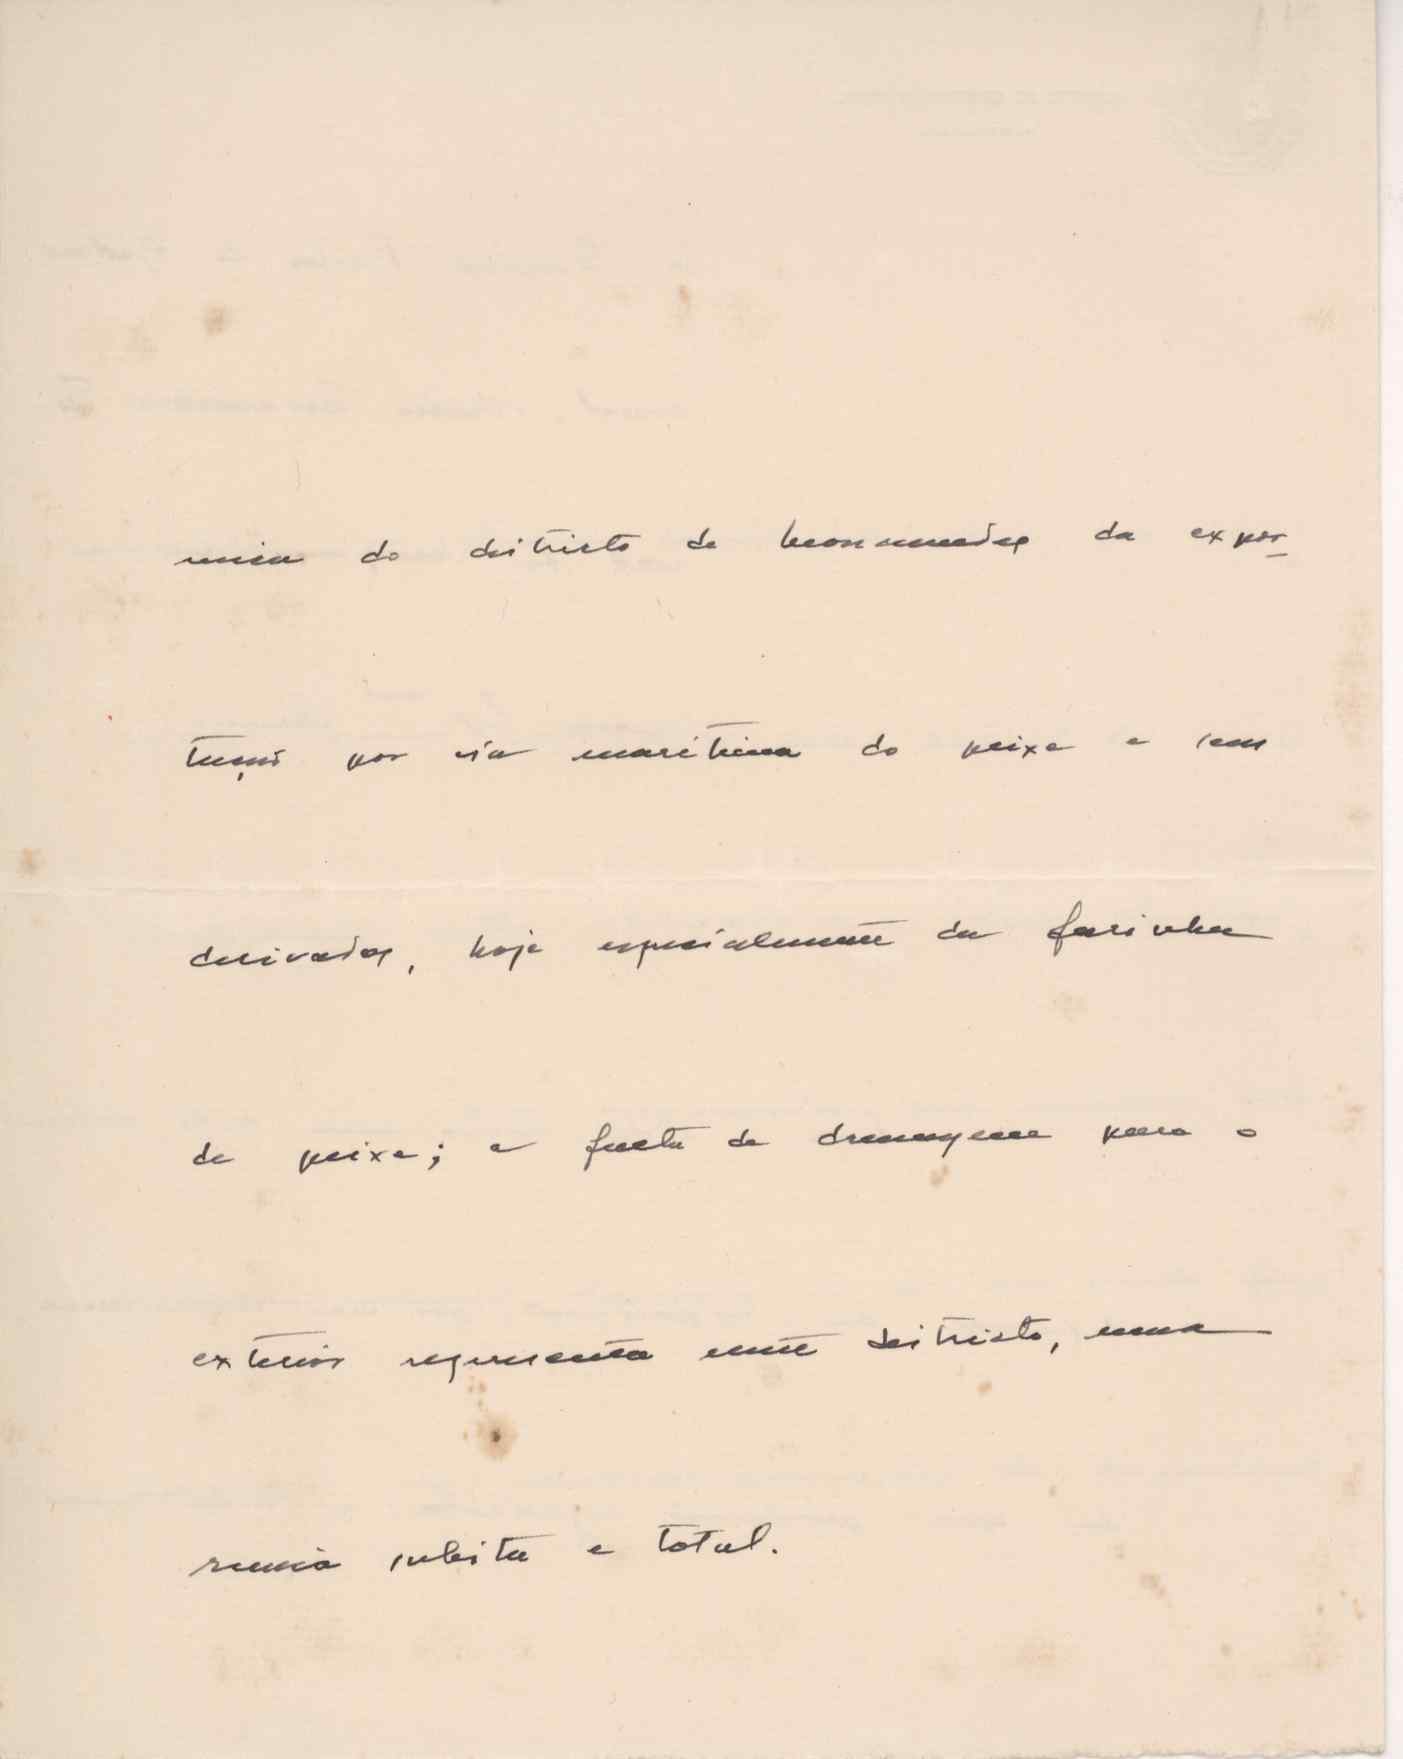 mia do districto de Mossamedes da expor-
tação por via maritima do peixe e seus
derivados, hoje especialmente da farinha
de peixe; a falta de drenagem para o
exterior representa neste districto, uma
ruina subita e total.